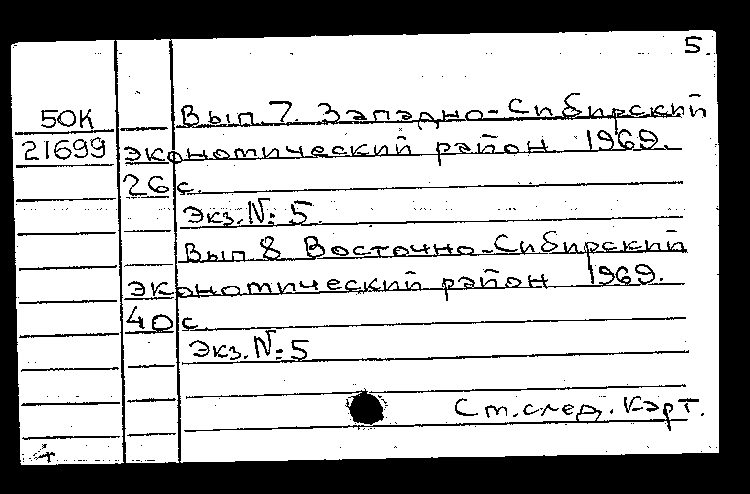 5.
50К Вып. 7. Западно-Сибирский
21699 экономический район 1969.
26 с.
Экз. №: 5
Вып 8 Восточно-Сибирский
экономический район 1969.
40 с.
Экз. №: 5
Ст. след. карт.